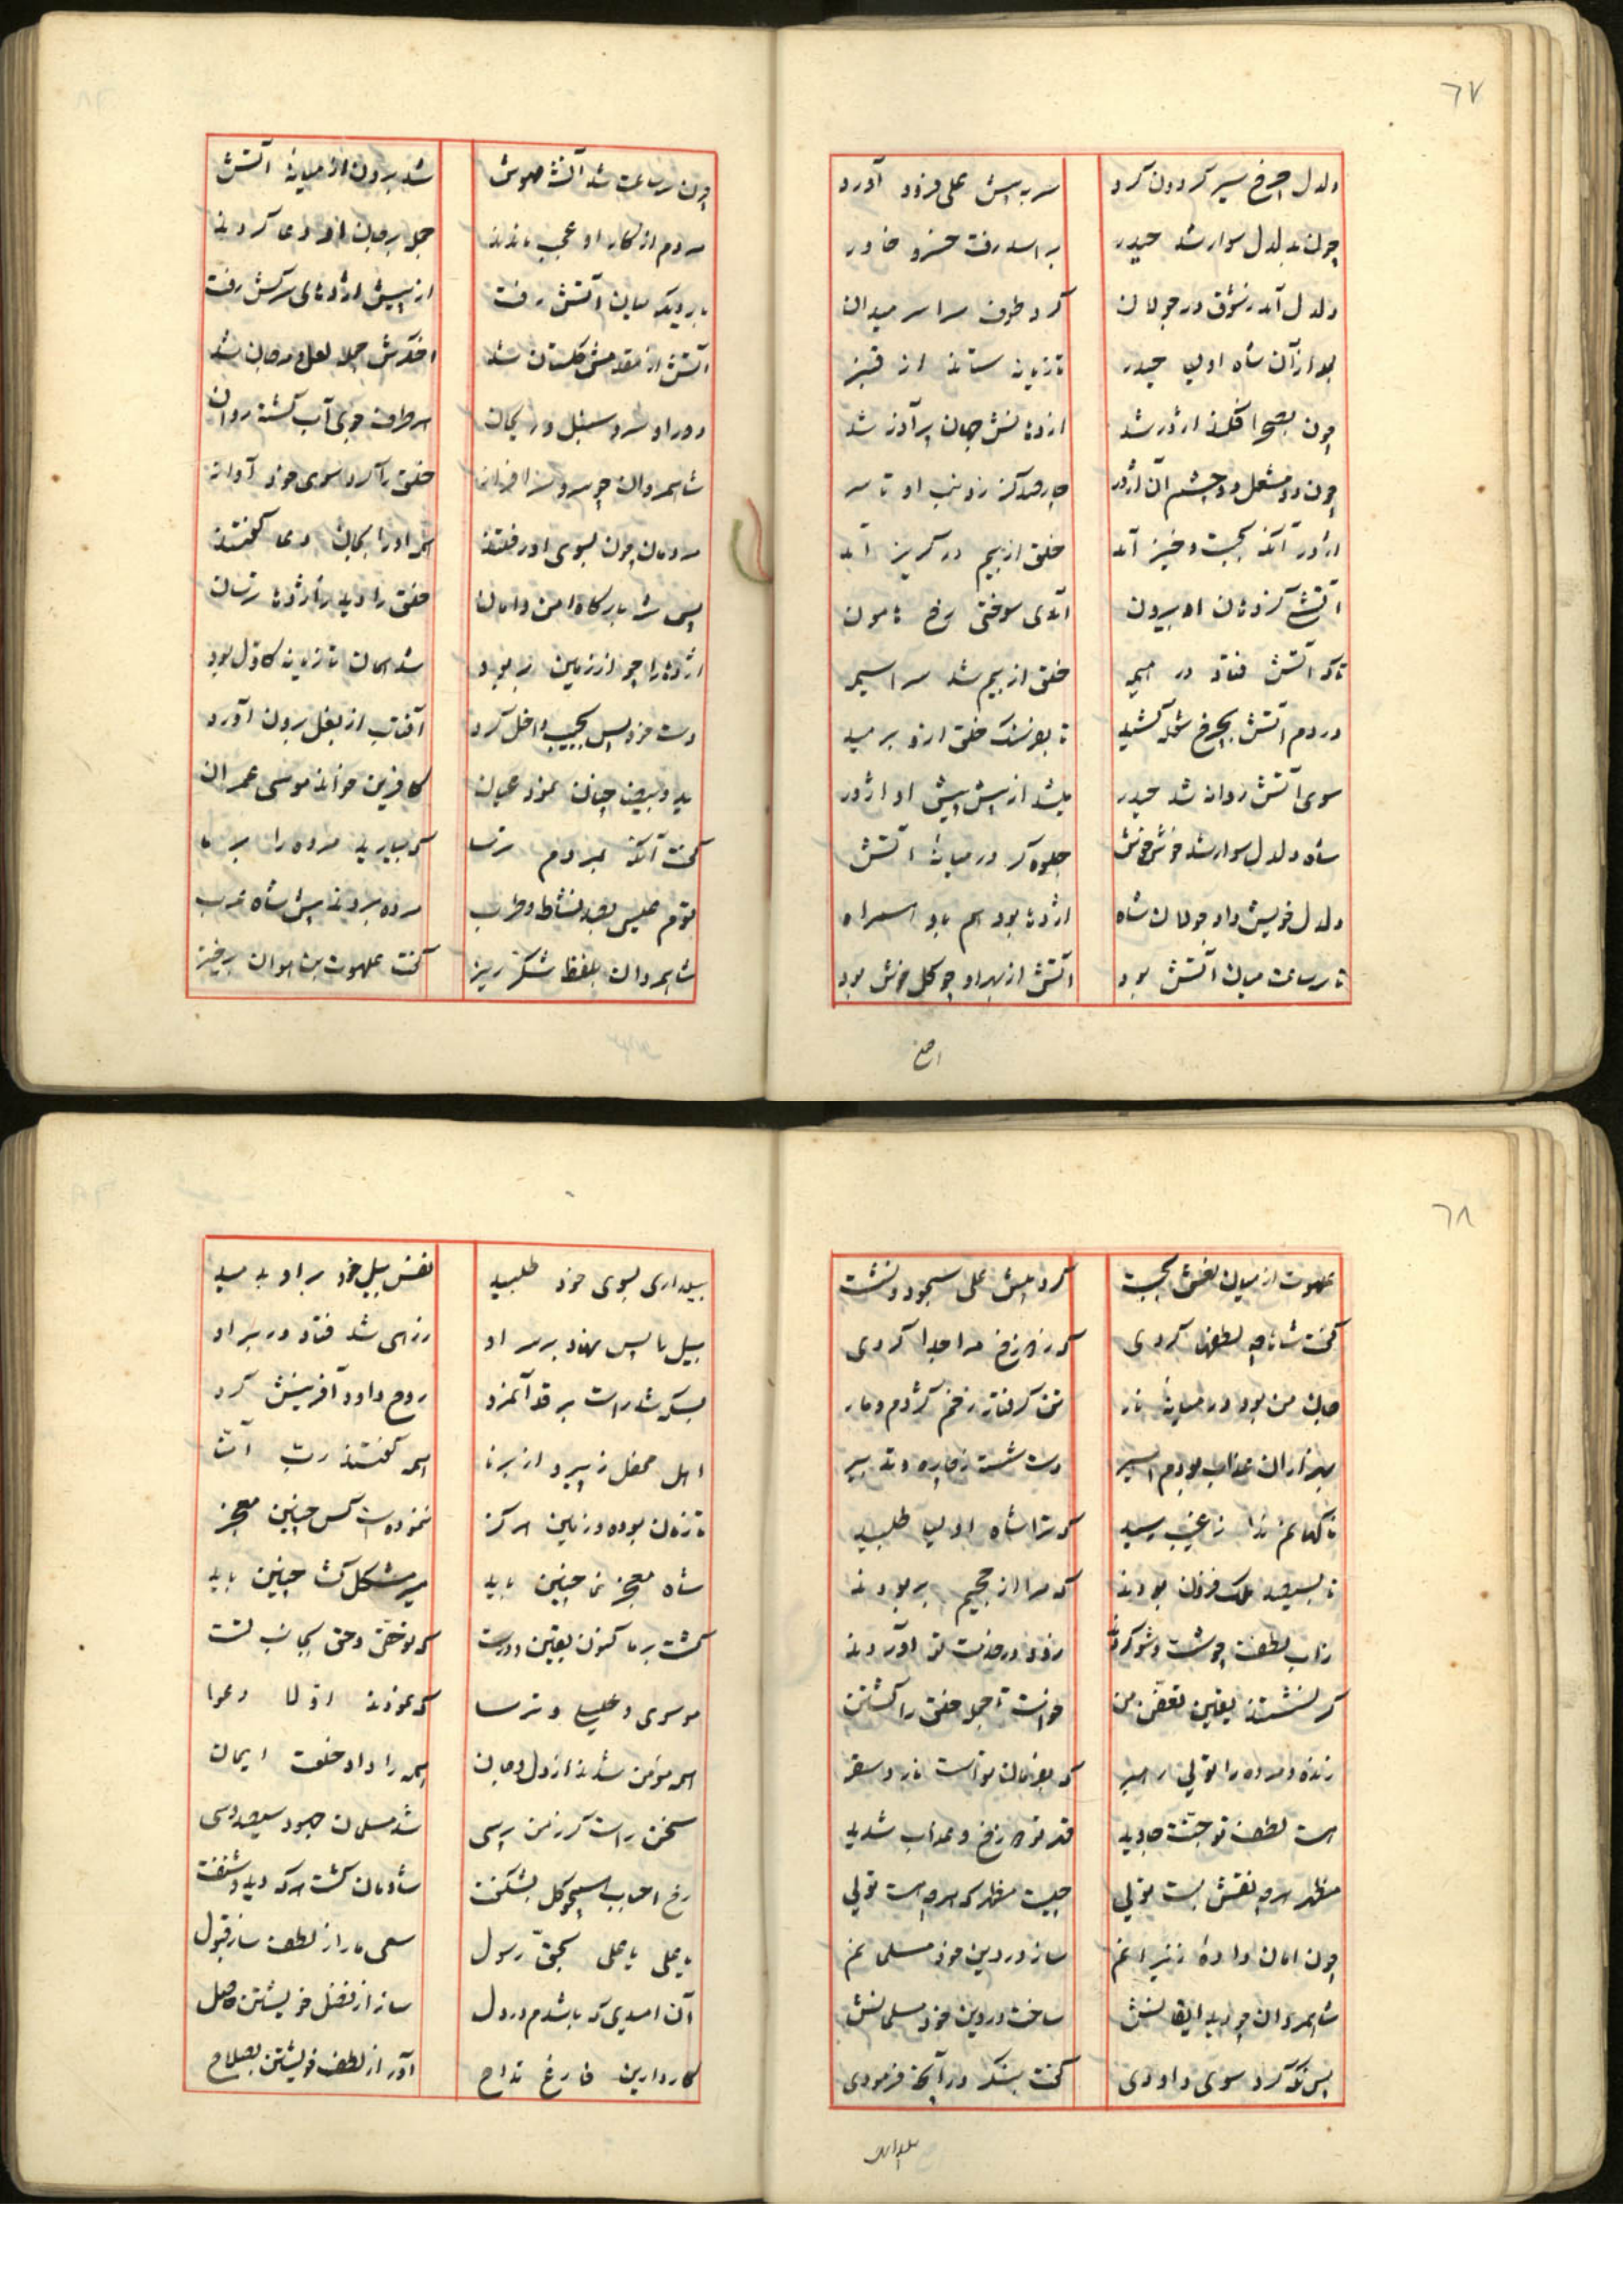 ٦٧
دلدل از چرخ سیر گردون کرد سر به پیش علی فرود آورد
چون به دلدل سوار شد حیدر بر اسد رفت خسرو خاور
دلدل آمد ز شوق در جولان کرد طوف سراسر میدان
بعد از آن شاه اولیا حیدر تازیانه ستاند از قنبر
چون بصحرا فکند اژدر شد از دهانش جهان پر آذر شد
چون دو مشعل دو چشم آن اژدر چارصد گز ز ذنب او تا سر
اژدر آنگه بجست و خیز آمد خلق از بیم در گریز آمد
آتش کز دهان او بیرون آمدی سوختی رخ هامون
تا که آتش فتاد در خلق از بیم شد سراسیمه
در دم آتش بچرخ شعله کشید تا بفرسنگ خلق ازو برمید
سوی آتش روان شد حیدر میشد از پیش پیش او اژدر
شاه دلدل سوار شد خوش خوش جلوه گر در میانه آتش
دلدل خویش داد جولان شاه اژدها بود هم باو همراه
تا سه ساعت میان آتش بود آتش از بهر او چو گل خوش بود
چون سه ساعت شد آتش خموش شد برون از میانه آتش
مردم از کار او عجب ماندند جمله بر جان او دعا کردند
بار دیگر میان آتش رفت از پیش اژدهای سرکش رفت
آتش از مقدمش گلستان شد اخگرش جمله لعل و مرجان شد
دور او سرو و سنبل و ریحان هر طرف جوی آب گشته روان
شاهمردان چو سرو سرافراز خلق را کرد سوی خود آواز
مردمان چون بسوی او رفتند همه او را بجان دعا گفتند
پس شه بارگاه امن و امان خلق را دید ز اژدها ترسان
اژدها را چو از زمین بربود شد همان تازیانه کاول بود
دست خود پس بجیب داخل کرد آفتاب از بغل برون آورد
ید و بیضا چنان نمود عیان کافرین خواند موسی عمران
گفت آنگه بمردم ترسا که بیارید مرده را بر ما
قوم عیسی بصد نشاط و طرب مرده بردند پیش شاه عرب
شاهمردان بلفظ شکر ریز گفت علهوت بن اهوان برخیز
٦٨
علهوت از میان نعش بجست کرد پیش علی سجود و نشست
گفت شاها چه لطفها کردی که ز دوزخ مرا جدا کردی
جان من بود در میانه نار تن گرفتار زخم کژدم و مار
بهزاران عذاب بودم اسیر دست شسته ز چاره و تدبیر
ناگهانم ندا ز غیب رسید که ترا شاه اولیا طلبید
تا بسیصد ملک فزون بودند که مرا از جحیم بربودند
زآب لطفت چو شست و شو کردند زود در خدمت تو آوردند
گر نشستند یقین تعفن من خواست تا جمله خلق را کشتن
زنده و مرده را تویی رهبر که بفرمان تو است نار و سقر
هست لطف تو جنت جاوید قهر تو دوزخ و عذاب شدید
مظهر هر چه نقش بست تویی چیست مظهر که هر چه هست تویی
چون امان دادهٔ ز نیرانم ساز در دین خود مسلمانم
شاهمردان چو دید ایقانش ساخت در دین خود مسلمانش
پس نگه کرد سوی داودی گفت بنگر در آنچه فرمودی
بیلداری بسوی خود طلبید نفس بیل خود بر او بدمید
بیل را پس نهاد بر سر او زرهی شد فتاد در بر او
بسکه شد راست بر قد آنمرد روح داود آفرینش کرد
اهل محفل ز پیر و از برنا همه گفتند رب آمنا
تا زمان بوده و زمین هرگز ننمودست کس چنین معجز
شاه معجز نما چنین باید سر مشکل گشا چنین باید
گشت بر ما کنون یقین و درست که تو حقی و حق بجانب تست
موسوی و عیسی و ترسا که نمودند اولا دعوا
همه مؤمن شدند از دل و جان همه را داد خلعت ایمان
سخن راست گر ز من پرسی شد مسلمان جهود سیصد و سی
رخ احباب همچو گل بشگفت شادمان گشت هر که دید و شنفت
یا علی یا علی بحق رسول سعی ما را از لطف ساز قبول
آن امیدی که باشدم در دل ساز از فضل خویشتن حاصل
کار دارین فارغ مداح آور از لطف خویشتن بصلاح